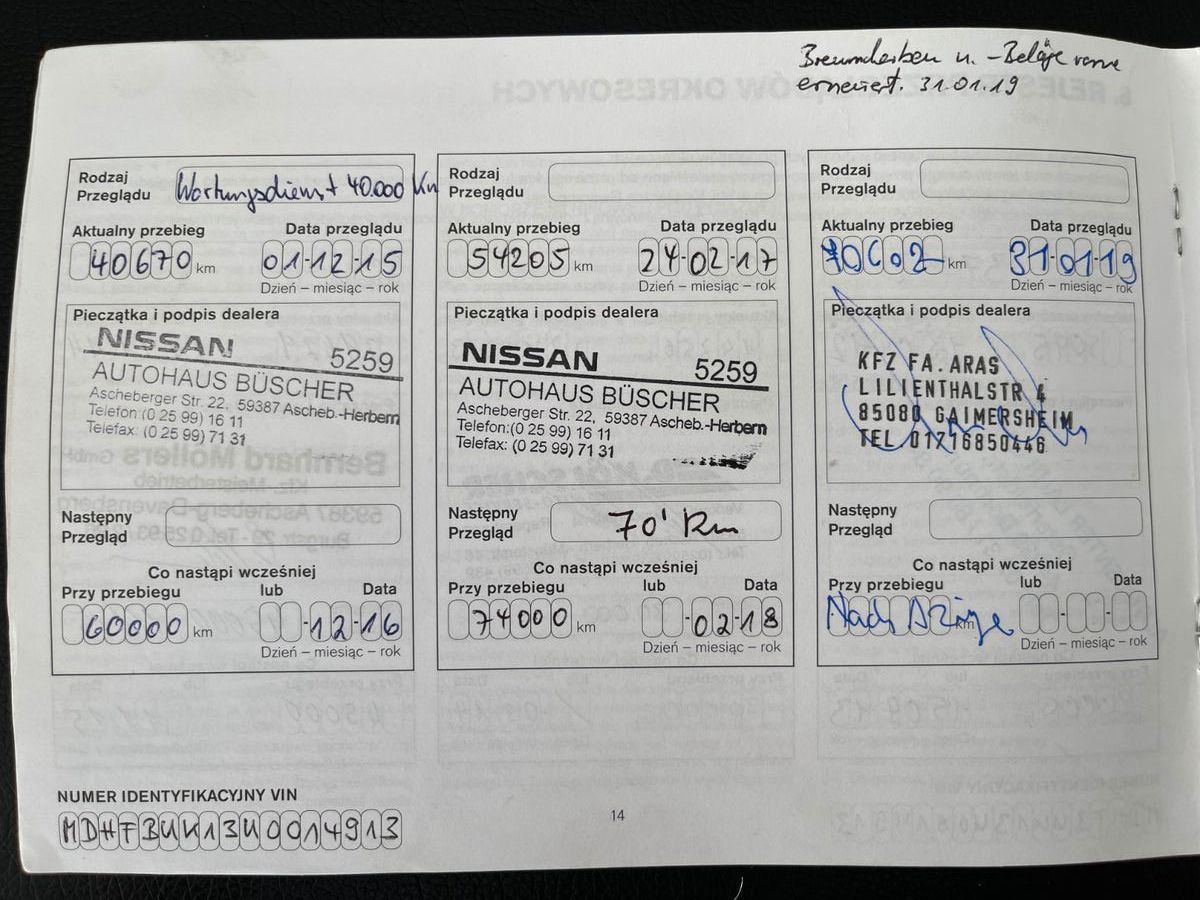 Bremsscheiben u. -Beläge vorne
erneuert. 31.01.19
Rodzaj
Przeglądu
Wartungsdienst 40.000 Km
Aktualny przebieg
Data przeglądu
40670 km
01-12-15
Dzień – miesiąc – rok
Pieczątka i podpis dealera
NISSAN
5259
AUTOHAUS BÜSCHER
Ascheberger Str. 22, 59387 Ascheb.-Herbern
Telefon:(0 25 99) 16 11
Telefax: (0 25 99) 71 31
Następny
Przegląd
Co nastąpi wcześniej
Przy przebiegu lub Data
60000 km
-12-16
Dzień – miesiąc – rok
Rodzaj
Przeglądu
Aktualny przebieg
Data przeglądu
54205 km
24-02-17
Dzień – miesiąc – rok
Pieczątka i podpis dealera
NISSAN
5259
AUTOHAUS BÜSCHER
Ascheberger Str. 22, 59387 Ascheb.-Herbern
Telefon:(0 25 99) 16 11
Telefax: (0 25 99) 71 31
Następny
Przegląd
70' Km
Co nastąpi wcześniej
Przy przebiegu lub Data
74000 km
-02-18
Dzień – miesiąc – rok
Rodzaj
Przeglądu
Aktualny przebieg
Data przeglądu
km
31-01-19
Dzień – miesiąc – rok
Pieczątka i podpis dealera
KFZ FA. ARAS
LILIENTHALSTR 4
85080 GAIMERSHEIM
TEL 01716850446
Następny
Przegląd
Co nastąpi wcześniej
Przy przebiegu lub Data
Nach Azeige km
Dzień – miesiąc – rok
NUMER IDENTYFIKACYJNY VIN
MDHFBUK13U0014913
14